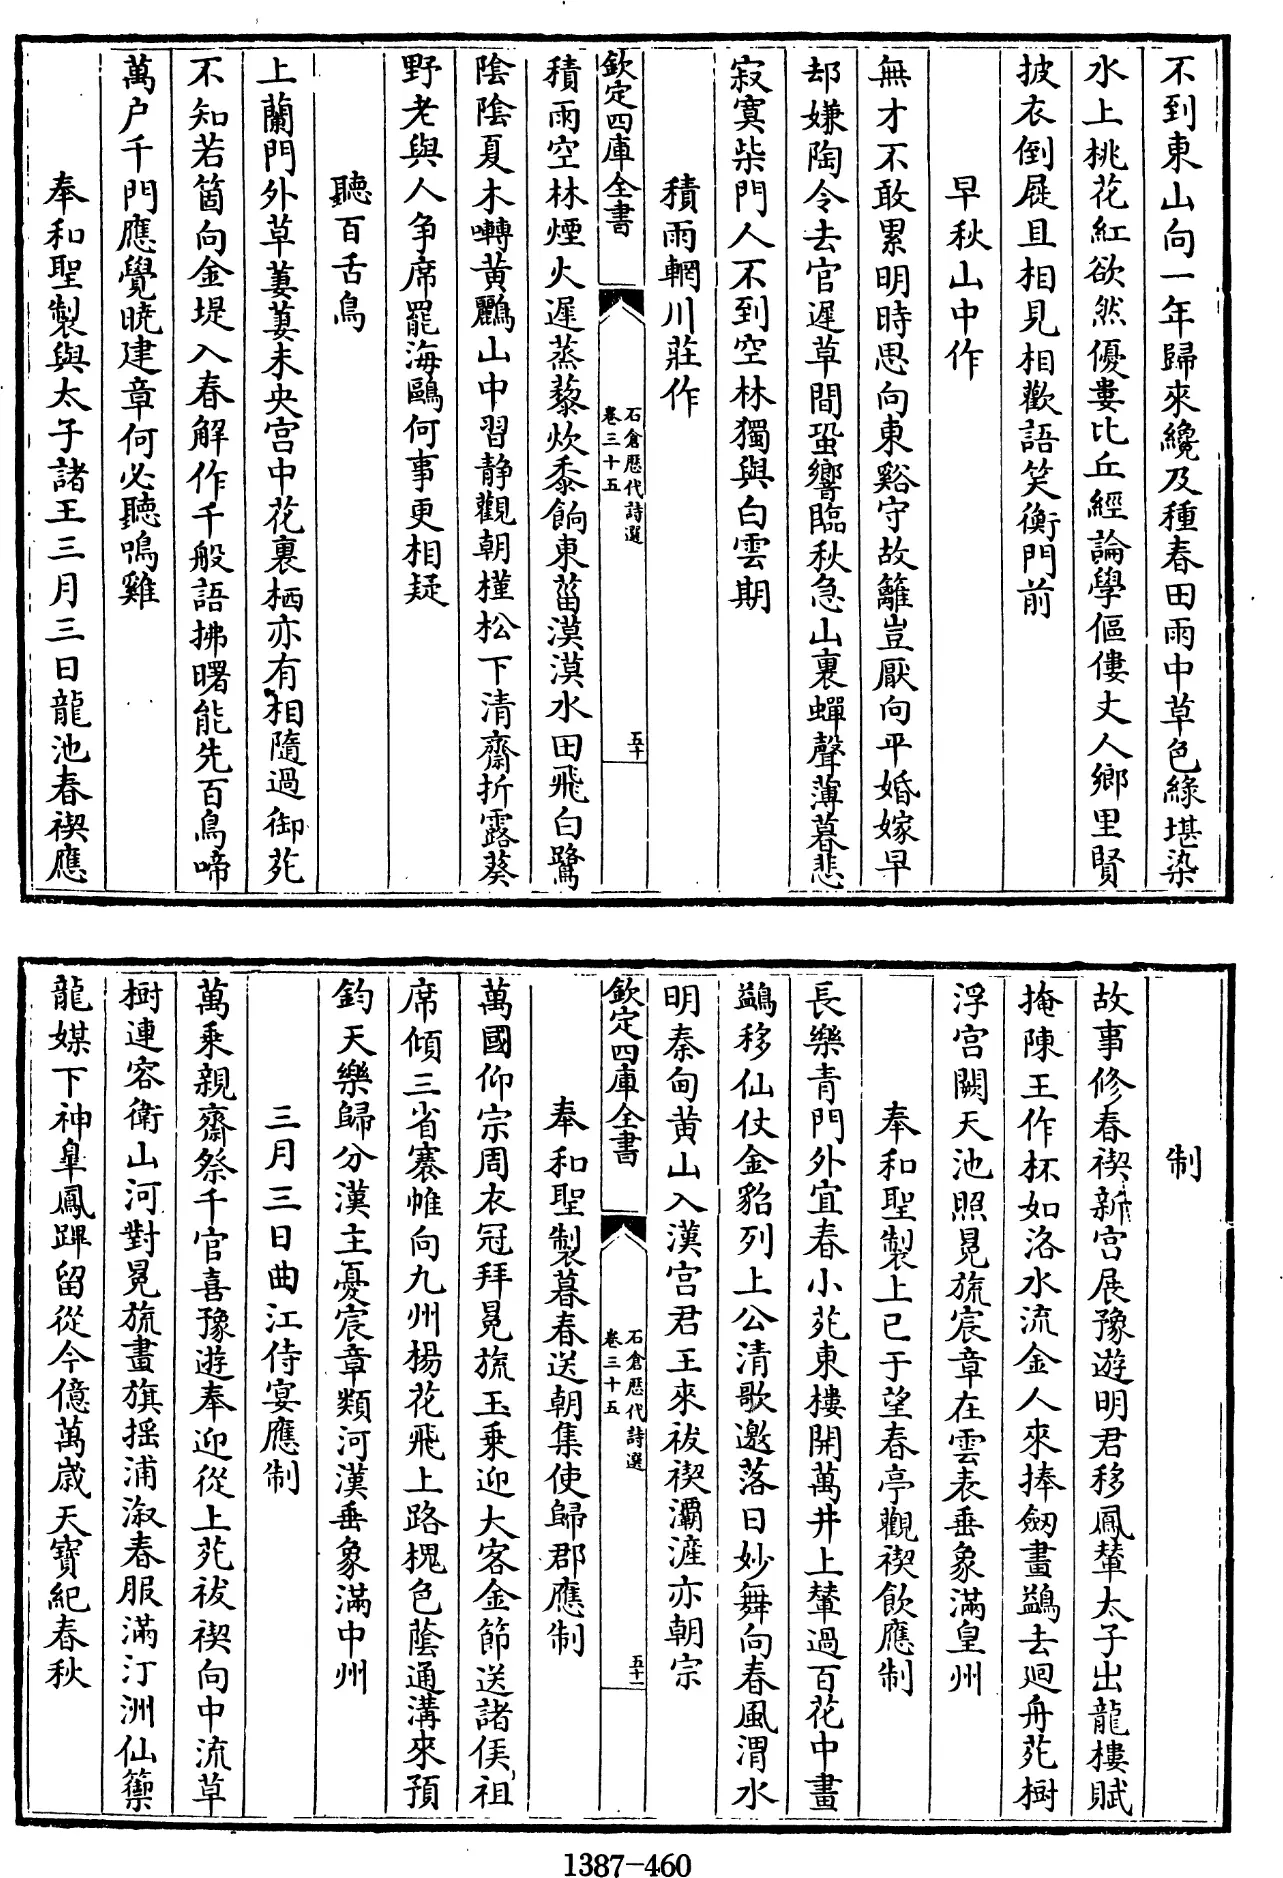 不到東山向一年歸來纔及種春田雨中草色緑堪染
水上桃花紅欲然優婁比丘經論學傴僂丈人鄉里賢
披衣倒屣且相見相歡語笑衡門前
早秋山中作
無才不敢累明時思向東谿守故籬豈厭向平婚嫁早
却嫌陶令去官遲草間蛩響臨秋急山裏蟬聲薄暮悲
寂寞柴門人不到空林獨與白雲期
積雨輞川莊作
欽定四庫全書
石倉歴代詩選
卷三十五
五十
積雨空林煙火遲蒸藜炊黍餉東菑漠漠水田飛白鷺
陰陰夏木囀黄鸝山中習静觀朝槿松下清齋折露葵
野老與人争席罷海鷗何事更相疑
聽百舌鳥
上蘭門外草萋萋未央宫中花裏栖亦有相隨過御苑
不知若箇向金堤入春解作千般語拂曙能先百鳥啼
萬户千門應覺曉建章何必聽鳴雞
奉和聖製與太子諸王三月三日龍池春禊應
制
故事修春禊新宫展豫遊明君移鳳輦太子出龍樓賦
掩陳王作杯如洛水流金人來捧劒畫鷁去廻舟苑樹
浮宫闕天池照冕旒宸章在雲表垂象滿皇州
奉和聖製上巳于望春亭觀禊飲應制
長樂青門外宜春小苑東樓開萬井上輦過百花中畫
鷁移仙仗金貂列上公清歌邀落日妙舞向春風渭水
明秦甸黄山入漢宫君王來祓禊灞滻亦朝宗
欽定四庫全書
石倉歴代詩選
卷三十五
五十一
奉和聖製暮春送朝集使歸郡應制
萬國仰宗周衣冠拜冕旒玉乗迎大客金節送諸侯祖
席傾三省褰帷向九州楊花飛上路槐色蔭通溝來預
鈞天樂歸分漢主憂宸章類河漢垂象滿中州
三月三日曲江侍宴應制
萬乗親齋祭千官喜豫遊奉迎從上苑祓禊向中流草
樹連容衛山河對冕旒畫旗揺浦溆春服滿汀洲仙籞
龍媒下神臯鳳蹕留從今億萬歲天寳紀春秋
1387-460